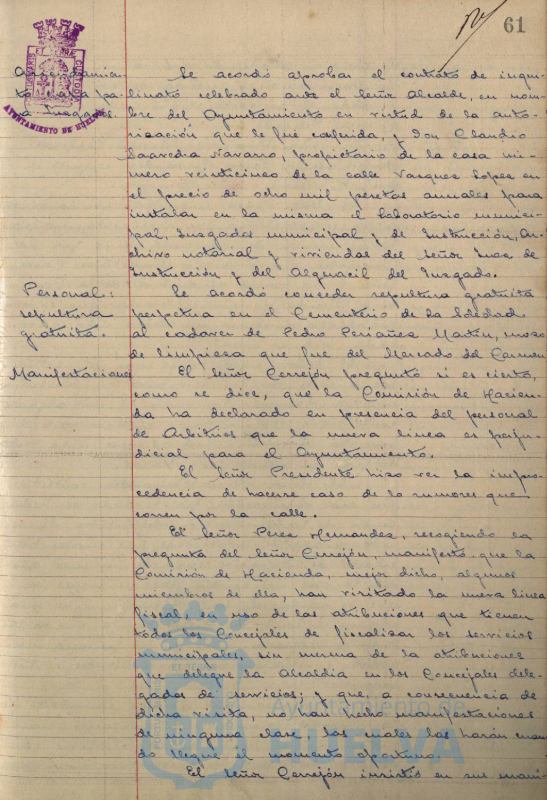 61
Arrendamien-
to casa pa-
ra Juzgados.
Se acordó aprobar el contrato de inqui-
linato celebrado ante el Señor Alcalde, en nom-
bre del Ayuntamiento en virtud de la auto-
rización que le fué conferida, y Don Claudio
Saavedra Navarro, propietario de la casa nú-
mero veinticinco de la calle Vazquez Lopez en
el precio de ocho mil pesetas anuales para
instalar en la misma el Laboratorio munici-
pal, Juzgados municipal y de Instrucción, Ar-
chivo notarial y viviendas del Señor Juez de
Instrucción y del Alguacil del Juzgado.
Personal:
sepultura
gratuita.
Se acordó conceder sepultura gratuita
perpetua en el Cementerio de la Soledad
al cadaver de Pedro Periañez Martin, mozo
de limpieza que fue del Mercado del Carmen
Manifestaciones
El Señor Cerrejón preguntó si es cierto,
como se dice, que la Comisión de Hacien-
da ha declarado en presencia del personal
de Arbitrios que la nueva linea es perju-
dicial para el Ayuntamiento.
El Señor Presidente hizo ver la impro-
cedencia de hacerse caso de los rumores que
corren por la calle.
El Señor Perez Hernandez, recogiendo la
pregunta del Señor Cerrejón, manifestó que la
Comisión de Hacienda, mejor dicho, algunos
miembros de ella, han visitado la nueva linea
fiscal, en uso de las atribuciones que tienen
todos los Concejales de fiscalizar los servicios
municipales, sin merma de la atribuciones
que delegue la Alcaldia en los Concejales dele-
gados de servicios; y que, a consecuencia de
dicha visita, no han hecho manifestaciones
de ninguna clase, las cuales las harán cuan-
do llegue el momento oportuno.
El Señor Cerrejón insistió en sus mani-
AYUNTAMIENTO DE HUELVA
Ayuntamiento de
HUELVA